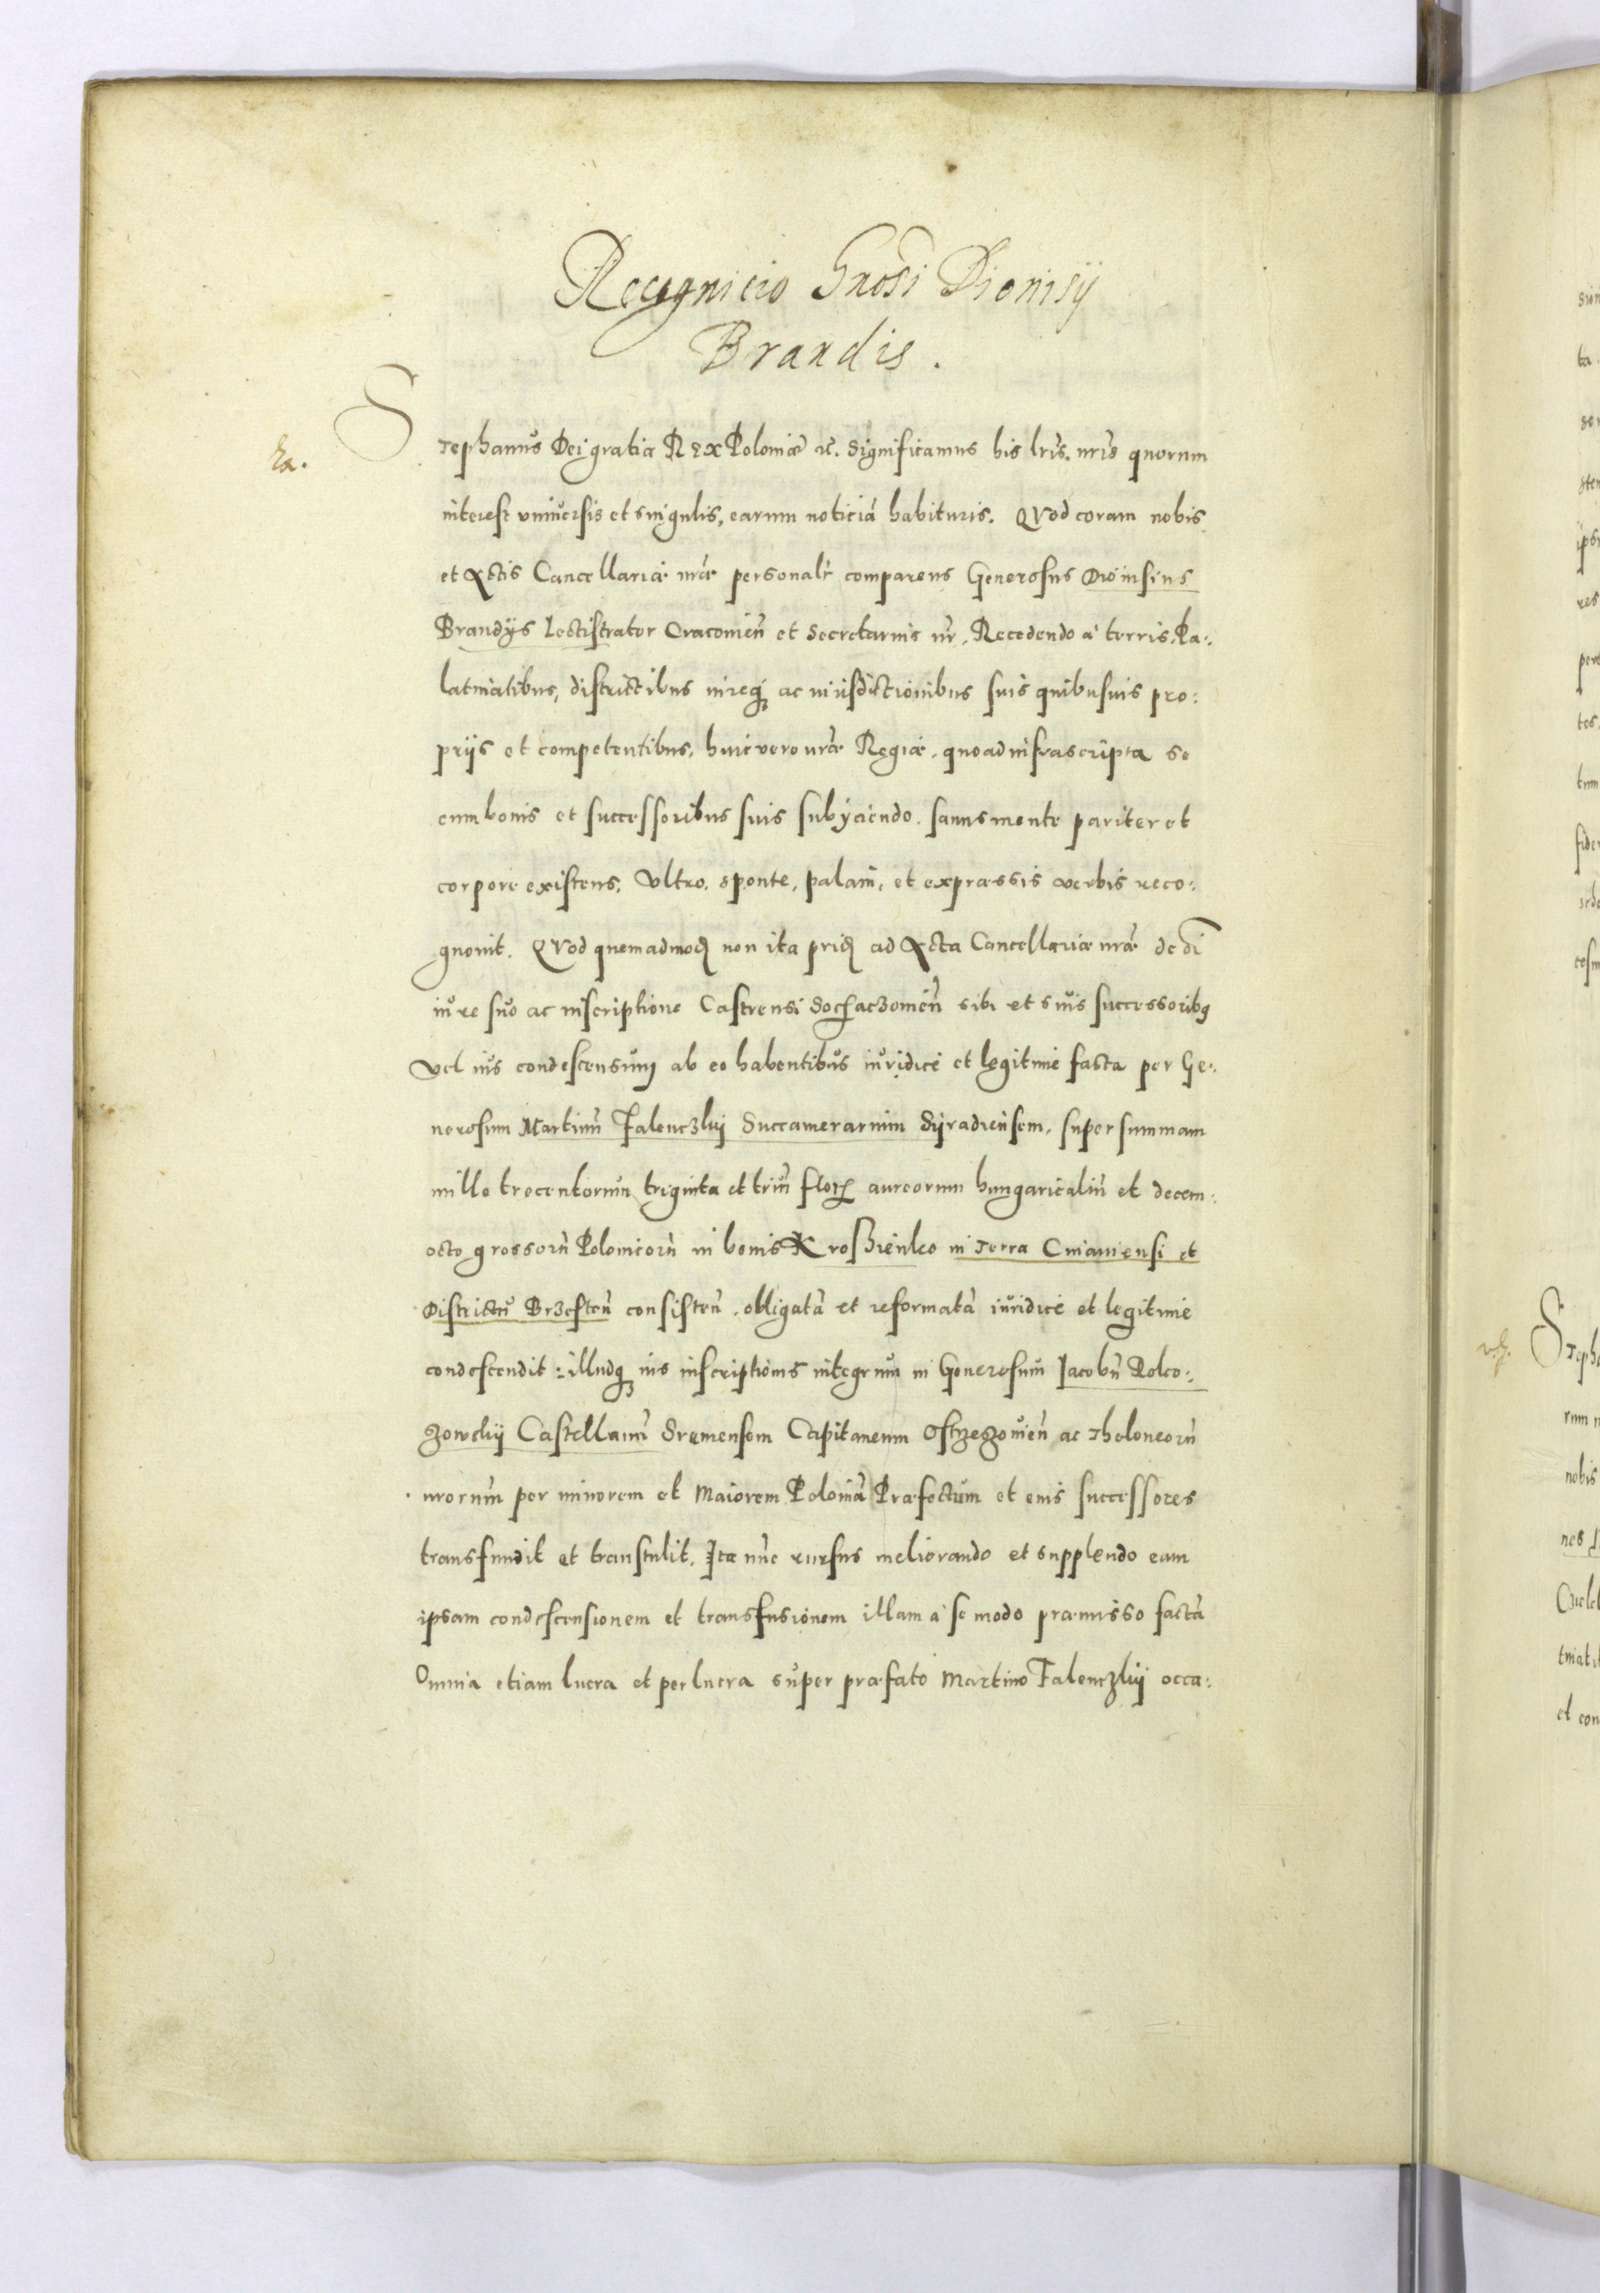 Recognicio Gnosi Dionisij
Brandis.
Ra.
Stephanus Dei gratia Rex Poloniæ etc. Significamus his lris. nris quorum
interest vniuersis et singulis, earum noticiã habituris. QVod coram nobis
et Actis Cancellariæ nræ personalr comparens Generosus Dionisius
Brandÿs Lectistrator Cracovieñ et Secretarius nr. Recedendo à terris, Pa:
latinatibus, districtibus iureq ac iurisdictionibus suis quibusuis pro:
prijs et competentibus, huic vero nræ Regiæ. quoad infrascripta se
cum bonis et successoribus suis subÿciendo. sanus mente pariter et
corpore existens, Vltro, sponte, palam, et expraessis verbis reco:
gnouit. QVod quemadmod non ita prid ad Acta Cancellariæ nræ de oi
iure suo ac inscriptione Castrensi Sochaczomieñ sibi et suis successoribq
Vel ius condescensum ab eo habentibus iuridicè et legitimè facta per Ge:
nerosum Martinũ Falenczkij Succamerarium Sÿradiensem, super summam
mille trecentorum triginta et triũ flor aureorum hungaricaliũ et decem:
octo grossorũ Polonicorũ in bonis Kroßienko in Terra Cuiauiensi et
Districtu Brzesteñ consisteñ. obligatã et reformatã iuridicè et legitimè
condescendit: illudq ius inscriptionis integrum in Generosum Iacobũ Roko:
zowskij Castellanũ Sremensem Capitaneum Ostrzezouieñ ac Theloneorũ
nrorum per minorem et Maiorem Poloniã Præfectum et eius successores
transfundit et transtulit. Ita nũc rursus meliorando et supplendo eam
ipsam condescensionem et transfusionem illam à se modo præmisso factã
Omnia etiam lucra et perlucra super præfato Martino Falenczkij occa: